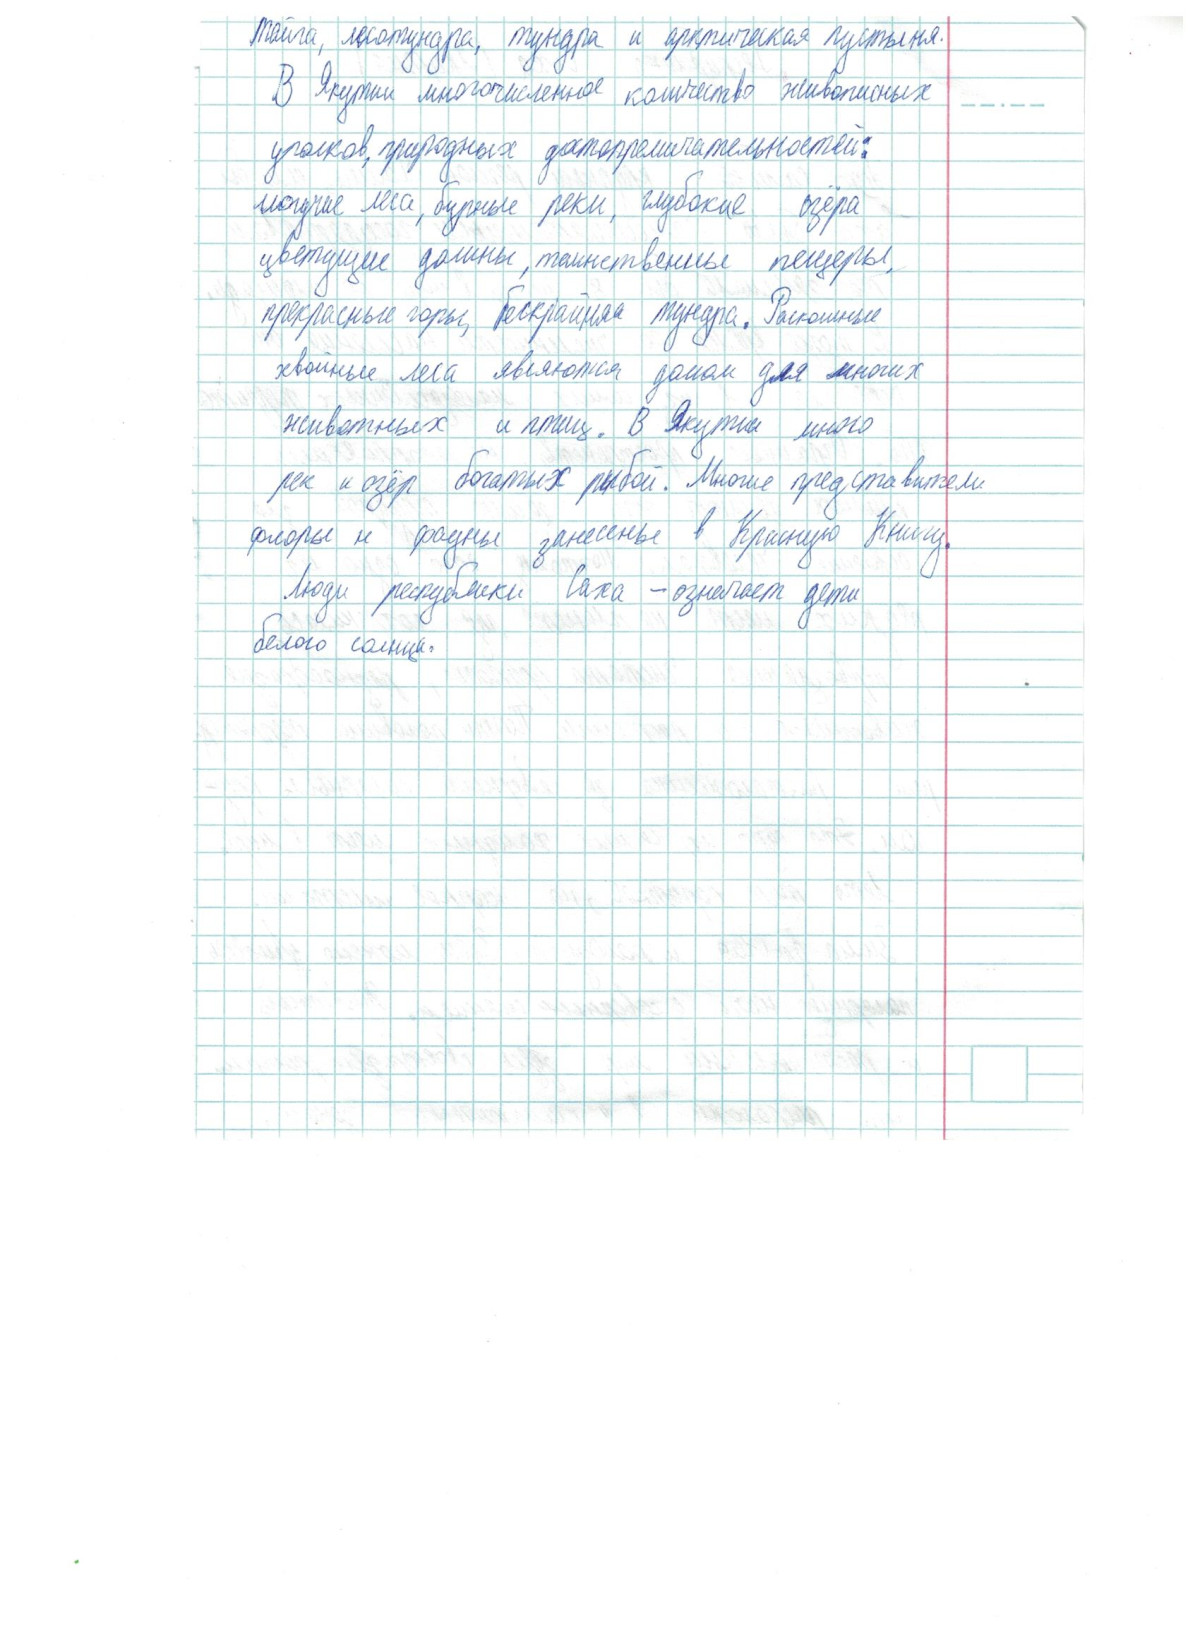 тайга, лесотундра, тундра и арктическая пустыня.
В Якутии многочисленное количество живописных
уголков, природных достопремичательностей:
могучие леса, бурные реки, глубокие озёра
цветущие долины, таинственные пещеры,
прекрасные горы, бескрайняя тундра. Роскошные
хвойные леса являются домом для многих
животных и птиц. В Якутии много
рек и озёр богатых рыбой. Многие представители
флоры и фауны занесены в Красную Книгу.
Люди республики Саха – означает дети
белого солнца.